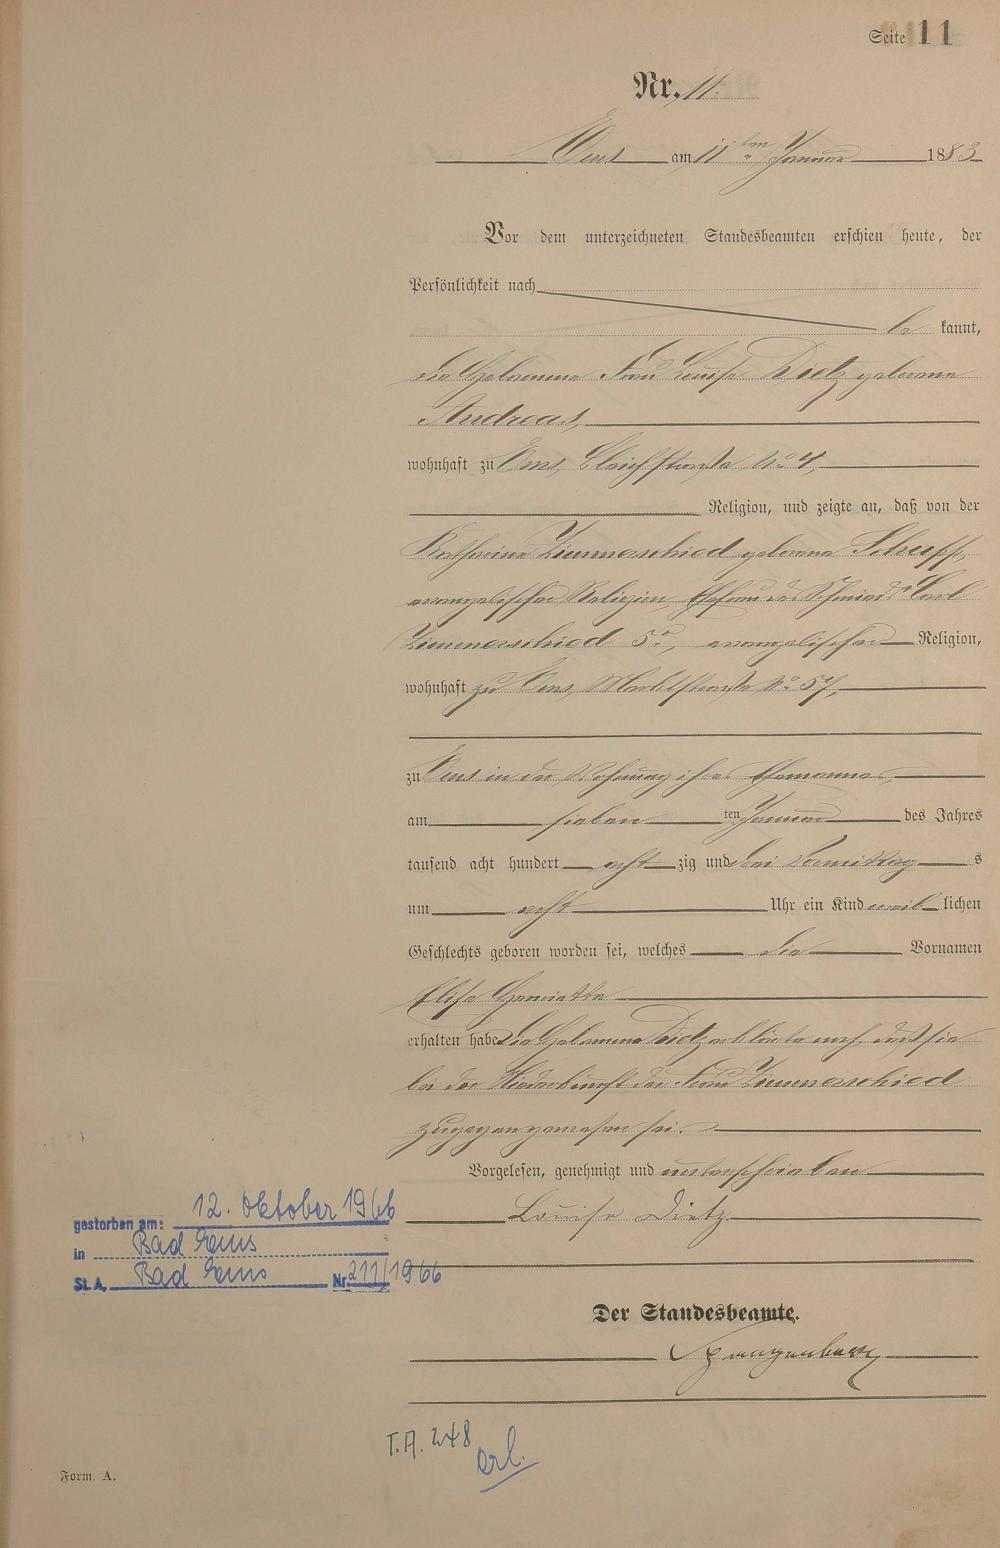 Seite 11
Nr. 11.
Ems am 11ten Januar 1883
Vor dem unterzeichneten Standesbeamten erschien heute, der
Persönlichkeit nach
be kannt,
die Hebamme Frau Louise Dietz geborene
Andreas,
wohnhaft zu Ems, Bleichstraße No 4,
Religion, und zeigte an, daß von der
Katharina Zimmerschied geborene Schupp,
evangelischer Religion, Ehefrau des Schmieds Carl
Zimmerschied 5r, evangelischer Religion,
wohnhaft zu Ems, Marktstraße No 57,
zu Ems in der Wohnung ihres Ehemannes,
am sieben ten Januar des Jahres
tausend acht hundert acht zig und drei Vormittag s
um acht Uhr ein Kind weib lichen
Geschlechts geboren worden sei, welches die Vornamen
Elise Henriette
erhalten habe. Die Hebamme Dietz erklärte noch, daß sie
bei der Niederkunft der Frau Zimmerschied
zugegen gewesen sei.
Vorgelesen, genehmigt und unterschrieben
Louise Dietz
gestorben am: 12. Oktober 1966
in Bad Ems
St. A. Bad Ems Nr. 211/1966
Der Standesbeamte.
T.A. 248
erl.
Form. A.